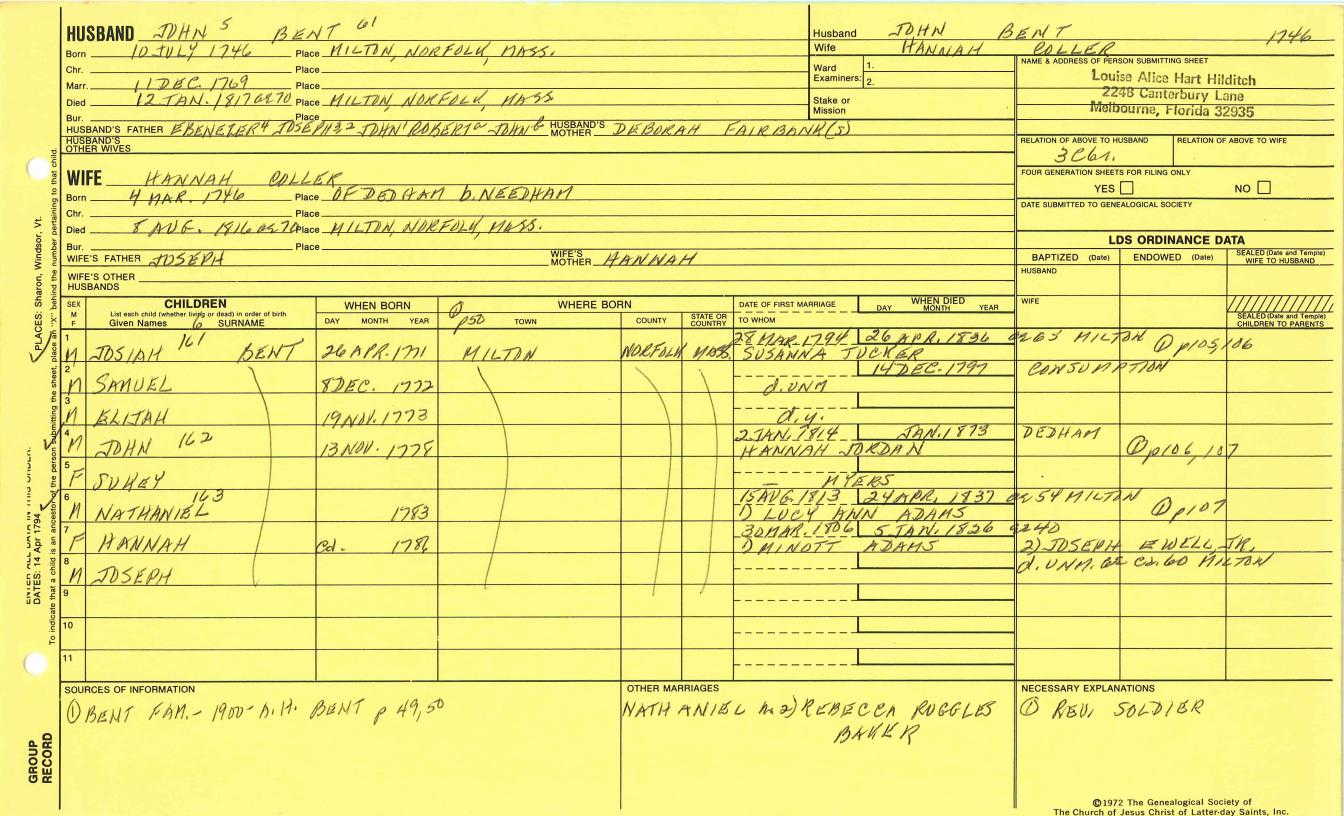 HUSBAND JOHN 5 BENT 61
Born 10 JULY 1746 Place MILTON, NORFOLK, MASS.
Chr. Place
Marr. 11 DEC. 1769 Place
Died 12 JAN. 1817 ae 70 Place MILTON, NORFOLK, MASS
Bur. Place
HUSBAND'S FATHER EBENEZER4 JOSEPH3,2 JOHN1 ROBERTa JOHNb HUSBAND'S MOTHER DEBORAH FAIRBANK(S)
HUSBAND'S OTHER WIVES
Husband JOHN BENT 1746
Wife HANNAH COLLER
Ward Examiners: 1.
2.
Stake or Mission
NAME & ADDRESS OF PERSON SUBMITTING SHEET
Louise Alice Hart Hilditch
2248 Canterbury Lane
Melbourne, Florida 32935
RELATION OF ABOVE TO HUSBAND RELATION OF ABOVE TO WIFE
3C6r.
FOUR GENERATION SHEETS FOR FILING ONLY
YES NO
DATE SUBMITTED TO GENEALOGICAL SOCIETY
WIFE HANNAH COLLER
Born 4 MAR. 1746 Place OF DEDHAM b. NEEDHAM
Chr. Place
Died 8 AUG. 1816 ae 70 Place MILTON, NORFOLK, MASS.
Bur. Place
WIFE'S FATHER JOSEPH WIFE'S MOTHER HANNAH
WIFE'S OTHER HUSBANDS
LDS ORDINANCE DATA
BAPTIZED (Date) ENDOWED (Date) SEALED (Date and Temple) WIFE TO HUSBAND
HUSBAND
WIFE
SEALED (Date and Temple) CHILDREN TO PARENTS
SEX M F CHILDREN WHEN BORN ① p50 WHERE BORN DATE OF FIRST MARRIAGE WHEN DIED
List each child (whether living or dead) in order of birth
Given Names 6 SURNAME DAY MONTH YEAR TOWN COUNTY STATE OR COUNTRY TO WHOM DAY MONTH YEAR
1 28 MAR. 1794 26 APR. 1836 ae 65 MILTON ① p105,106
M JOSIAH 161 BENT 26 APR. 1771 MILTON NORFOLK MASS. SUSANNA TUCKER
2 14 DEC. 1797 CONSUMPTION
M SAMUEL 8 DEC. 1772 d. UNM
3
M ELIJAH 19 NOV. 1773 d.y.
4 2 JAN. 1814 JAN. 1873 DEDHAM
M JOHN 162 13 NOV. 1778 HANNAH JORDAN ① p106,107
5
F SUKEY — MYERS
6 15 AUG. 1813 24 APR. 1837 ae 54 MILTON
M NATHANIEL 163 1783 1) LUCY ANN ADAMS ① p107
7 30 MAR. 1806 5 JAN. 1826 ae 40
F HANNAH cd. 1786 1) MINOTT ADAMS 2) JOSEPH EWELL, JR.
8 d. UNM. ae ca. 60 MILTON
M JOSEPH
9
10
11
SOURCES OF INFORMATION
① BENT FAM. - 1900 - A.H. BENT p 49,50
OTHER MARRIAGES
NATHANIEL m 2) REBECCA RUGGLES
BAKER
NECESSARY EXPLANATIONS
① REV. SOLDIER
©1972 The Genealogical Society of
The Church of Jesus Christ of Latter-day Saints, Inc.
PLACES: Sharon, Windsor, Vt.
ENTER ALL DATA IN THIS ORDER:
DATES: 14 Apr 1794
To indicate that a child is an ancestor of the person submitting the sheet, place an "X" behind the number pertaining to that child.
GROUP
RECORD